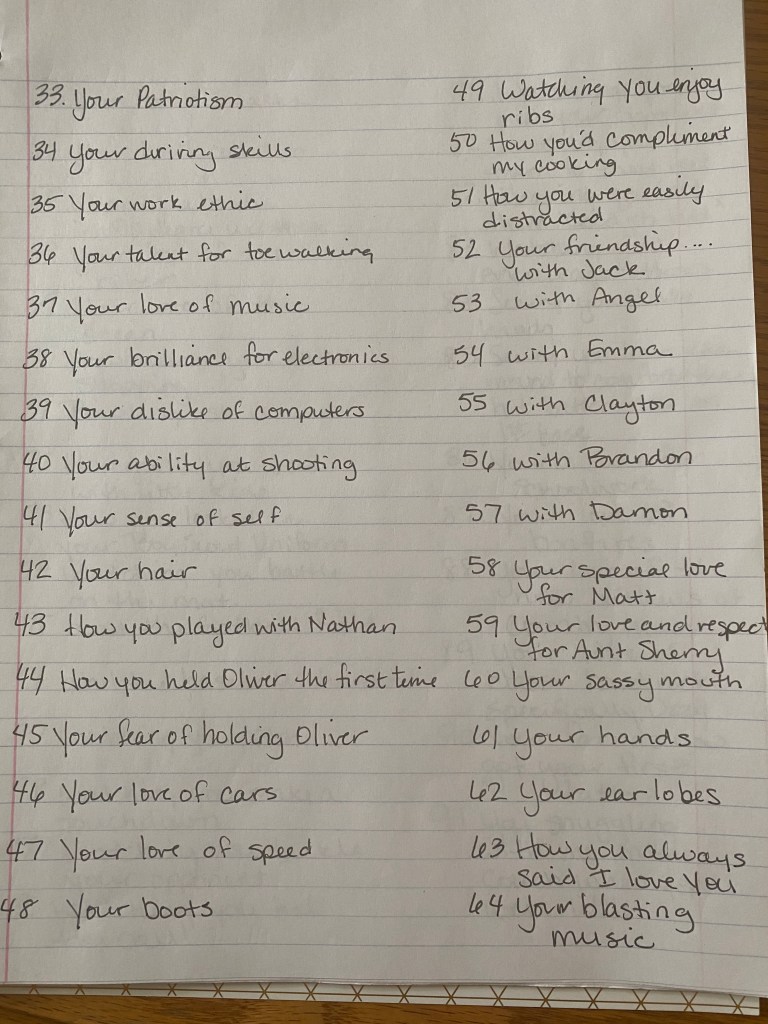 33. Your Patriotism
34 Your driving skills
35 Your work ethic
36 Your talent for toe walking
37 Your love of music
38 Your brilliance for electronics
39 Your dislike of computers
40 Your ability at shooting
41 Your sense of self
42 Your hair
43 How you played with Nathan
44 How you held Oliver the first time
45 Your fear of holding Oliver
46 Your love of cars
47 Your love of speed
48 Your boots
49 Watching you enjoy
ribs
50 How you'd compliment
my cooking
51 How you were easily
distracted
52 Your friendship....
with Jack
53 with Angel
54 with Emma
55 with Clayton
56 with Brandon
57 with Damon
58 Your special love
for Matt
59 Your love and respect
for Aunt Sherry
60 Your sassy mouth
61 Your hands
62 Your ear lobes
63 How you always
said I love you
64 Your blasting
music